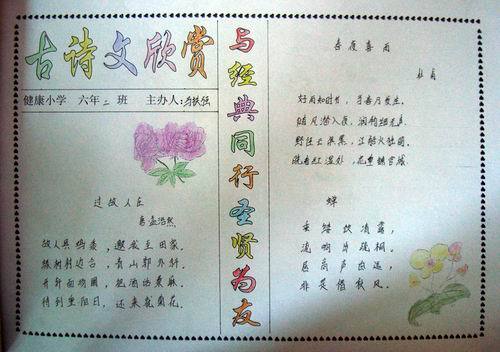 古诗文欣赏
健康小学 六年二班 主办人:
过故人庄
唐孟浩然
故人具鸡黍,邀我至田家。
绿树村边合,青山郭外斜。
开轩面场圃,把酒话桑麻。
待到重阳日,还来就菊花。
与经典同行圣贤为友
春夜喜雨
杜甫
好雨知时节,当春乃发生。
随风潜入夜,润物细无声。
野径云俱黑,江船火独明。
晓看红湿处,花重锦官城。
蝉
垂緌饮清露,
流响出疏桐。
居高声自远,
非是借秋风。